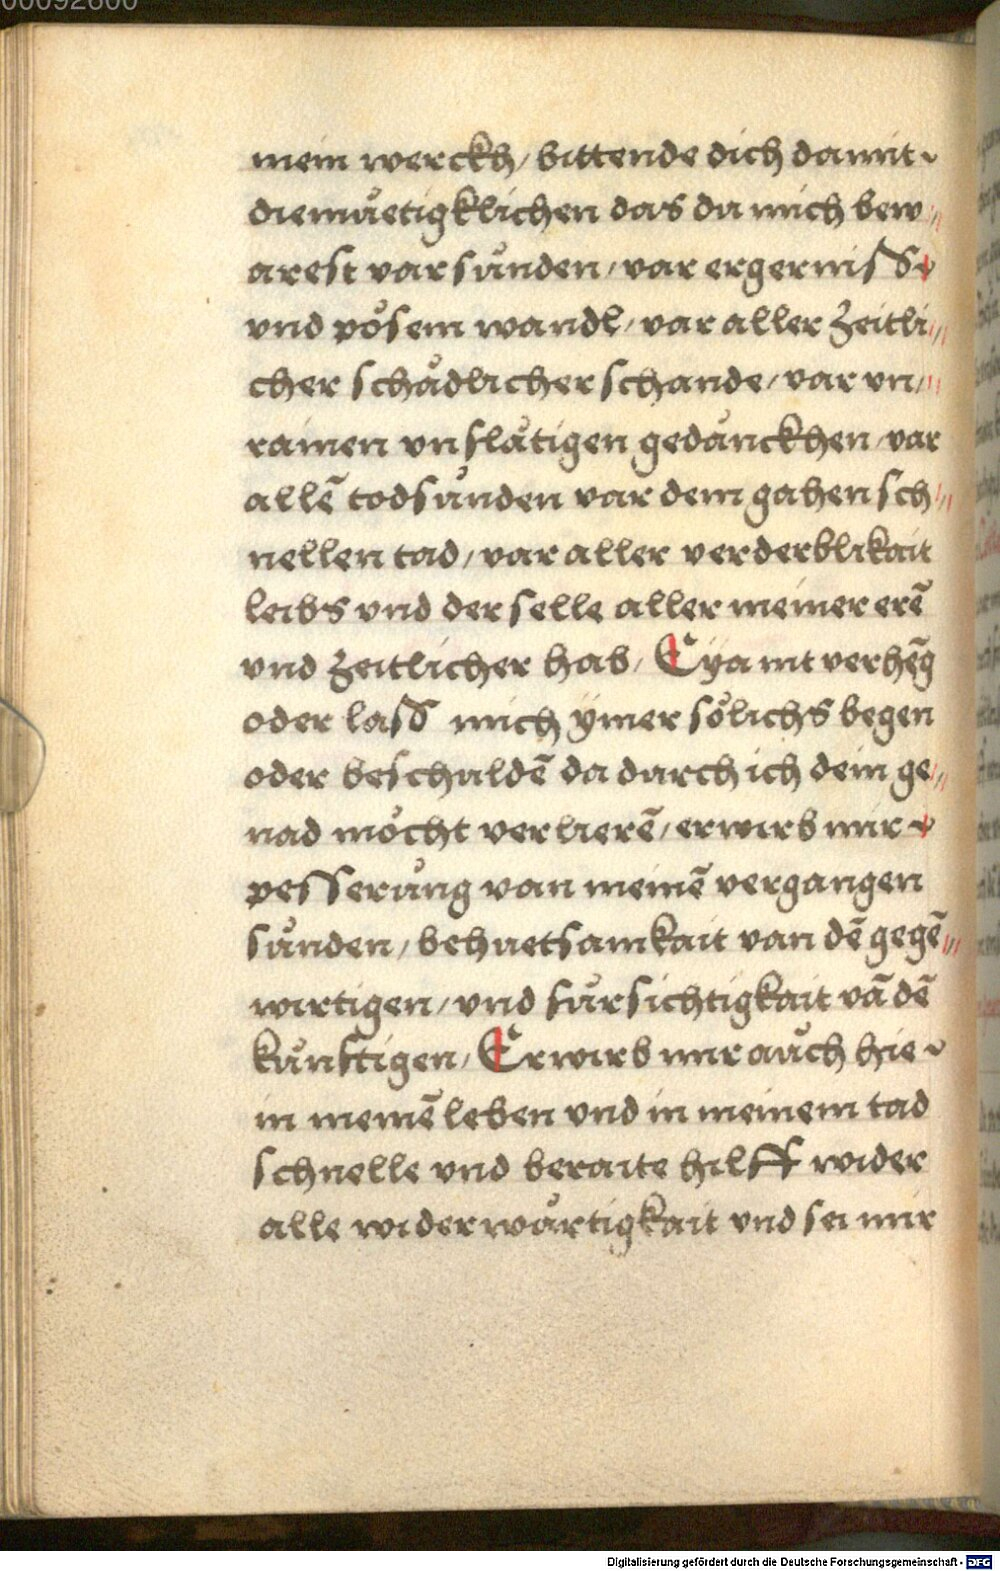 00092800
mein werckh / bittende dich damit
diemůetigklichen das du mich bew//
arest var sůnden / var ergerniss
vnd pősem wandl / var aller zeitli//
cher schådlicher schande / var vn//
rainen vnflåtigen gedånckhen var
allē todsůnden var dem gahen sch//
nellen tad / var aller verderblikait
leibs vnd der selle aller meiner erē
vnd zeitlicher hab / Eya nit verhēg
oder lass mich ÿmer sőlichs begen
oder beschuldē da durch ich dein ge//
nad mőcht verlierē / erwirb mir
pesserůng van meinē vergangen
sůnden / behuetsamkait van dē gegē//
wirtigen / vnd fůrsichtigkait vā dē
kůnftigen / Erwirb mir aůch hie
in meinē leben vnd in meinem tad
schnelle vnd beraite hilff wider
alle widerwårtigkait vnd sei mir
Digitalisierung gefördert durch die Deutsche Forschungsgemeinschaft - DFG